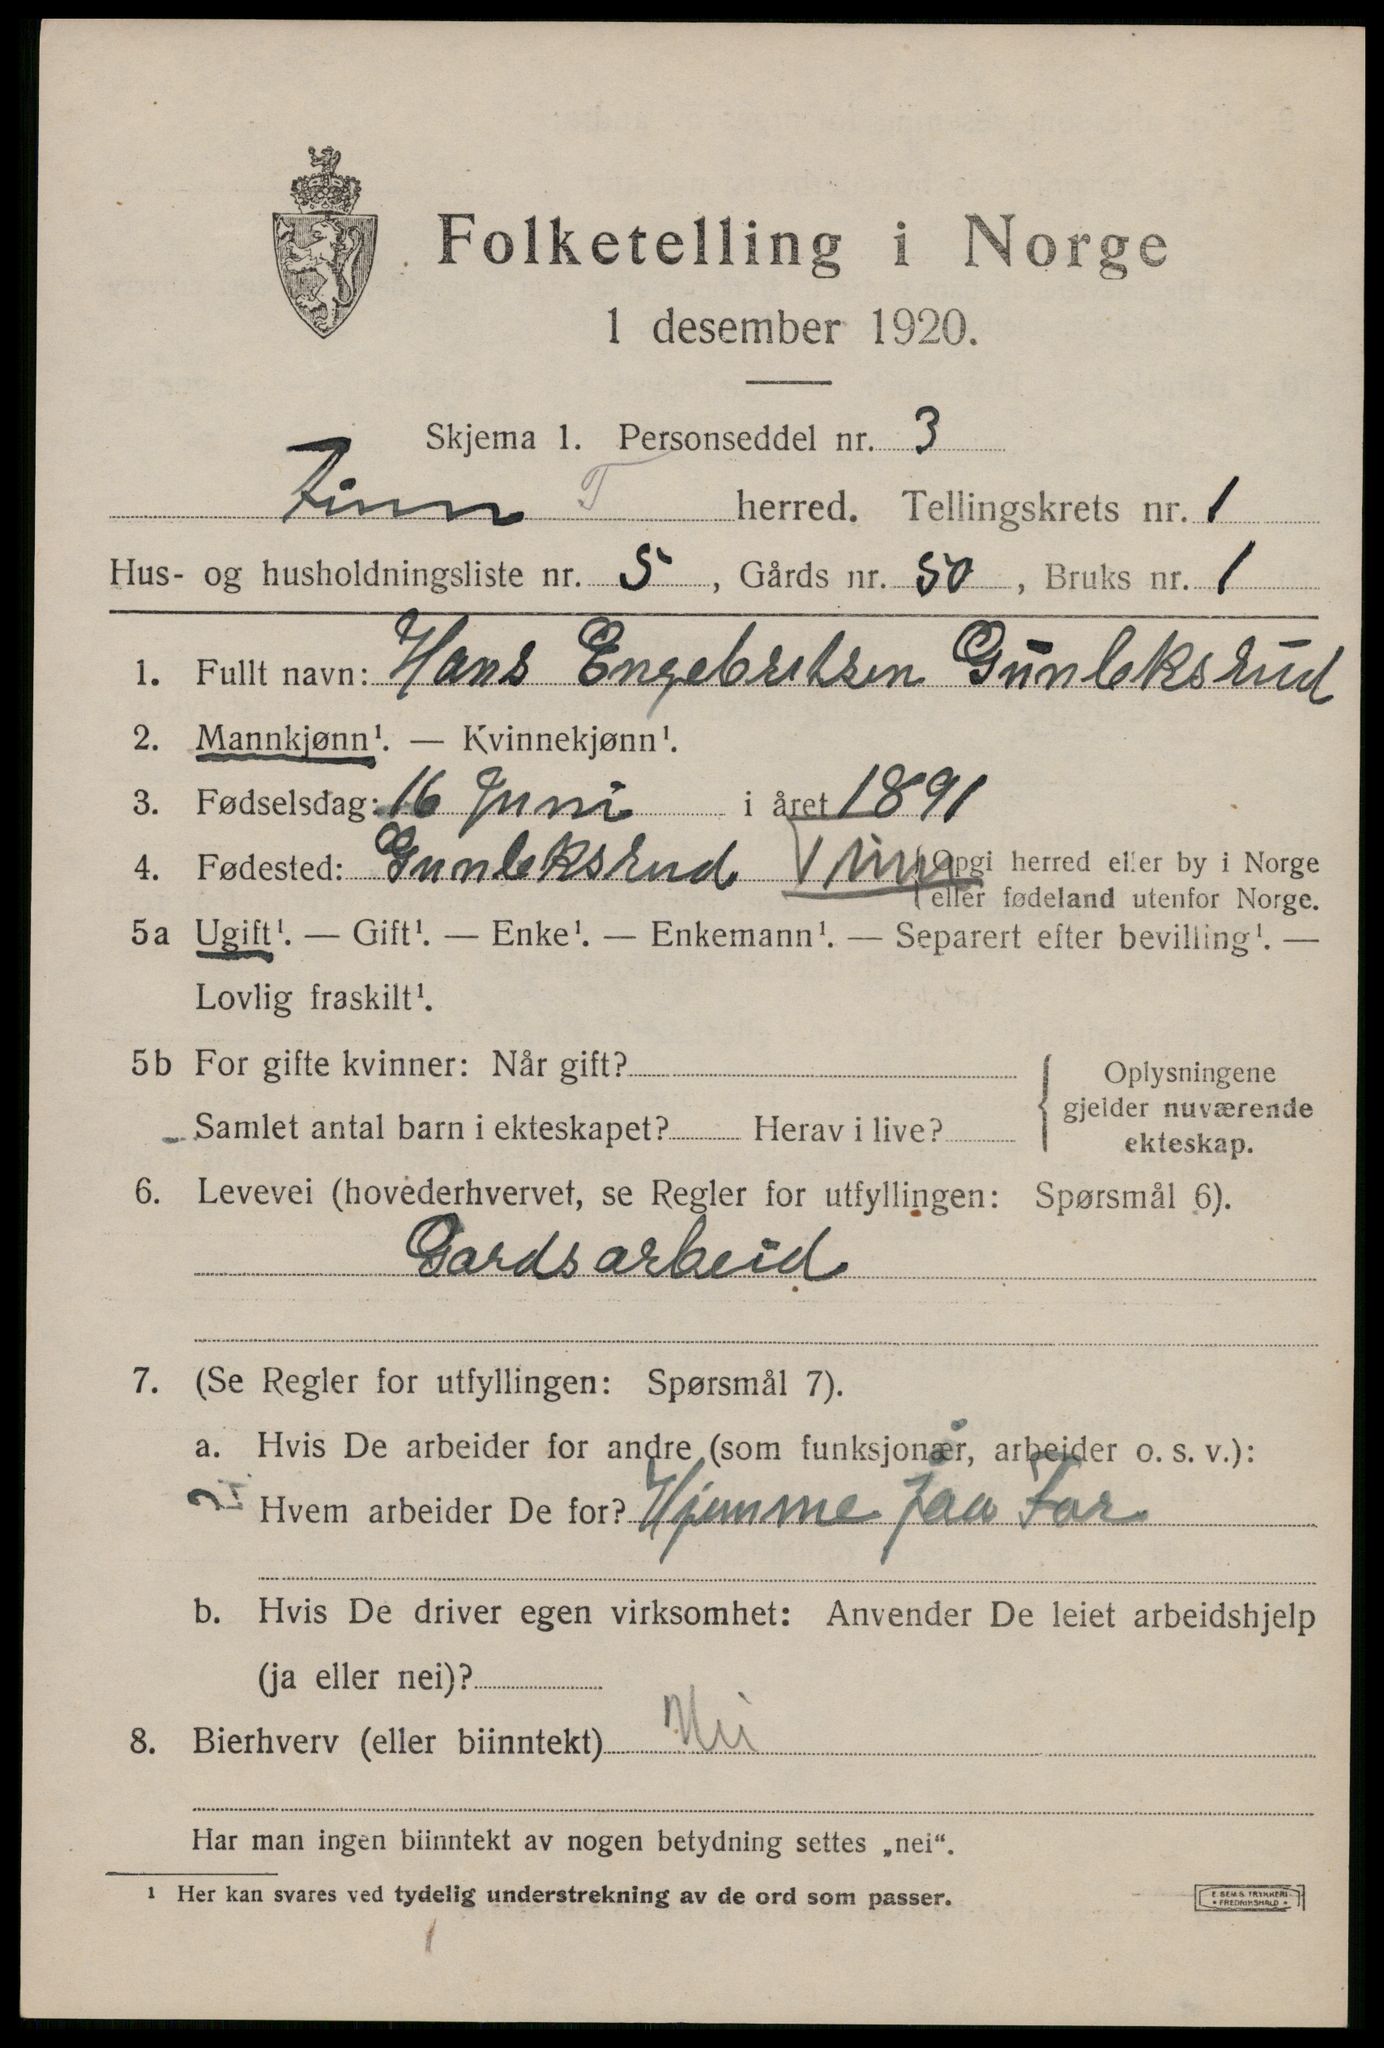 Folketelling i Norge
1 desember 1920.
Skjema 1. Personseddel nr. 3
Tinn T herred. Tellingskrets nr. 1
Hus- og husholdningsliste nr. 5, Gårds nr. 50, Bruks nr. 1
1. Fullt navn: Hans Engebretsen Gunleksrud
2. Mannkjønn¹. — Kvinnekjønn¹.
3. Fødselsdag: 16 Juni i året 1891
4. Fødested: Gunleksrud Tinn (Opgi herred eller by i Norge
eller fødeland utenfor Norge.
5a Ugift¹. — Gift¹. — Enke¹. — Enkemann¹. — Separert efter bevilling¹. —
Lovlig fraskilt¹.
5b For gifte kvinner: Når gift?
Samlet antal barn i ekteskapet? Herav i live?
Oplysningene
gjelder nuværende
ekteskap.
6. Levevei (hovederhvervet, se Regler for utfyllingen: Spørsmål 6).
Gardsarbeid
7. (Se Regler for utfyllingen: Spørsmål 7).
a. Hvis De arbeider for andre (som funksjonær, arbeider o. s. v.):
Hvem arbeider De for? Hjemme hos Far
b. Hvis De driver egen virksomhet: Anvender De leiet arbeidshjelp
(ja eller nei)?
8. Bierhverv (eller biinntekt) Nei
Har man ingen biinntekt av nogen betydning settes „nei“.
¹ Her kan svares ved tydelig understrekning av de ord som passer.
E. SEMS TRYKKERI
FREDRIKSHALD